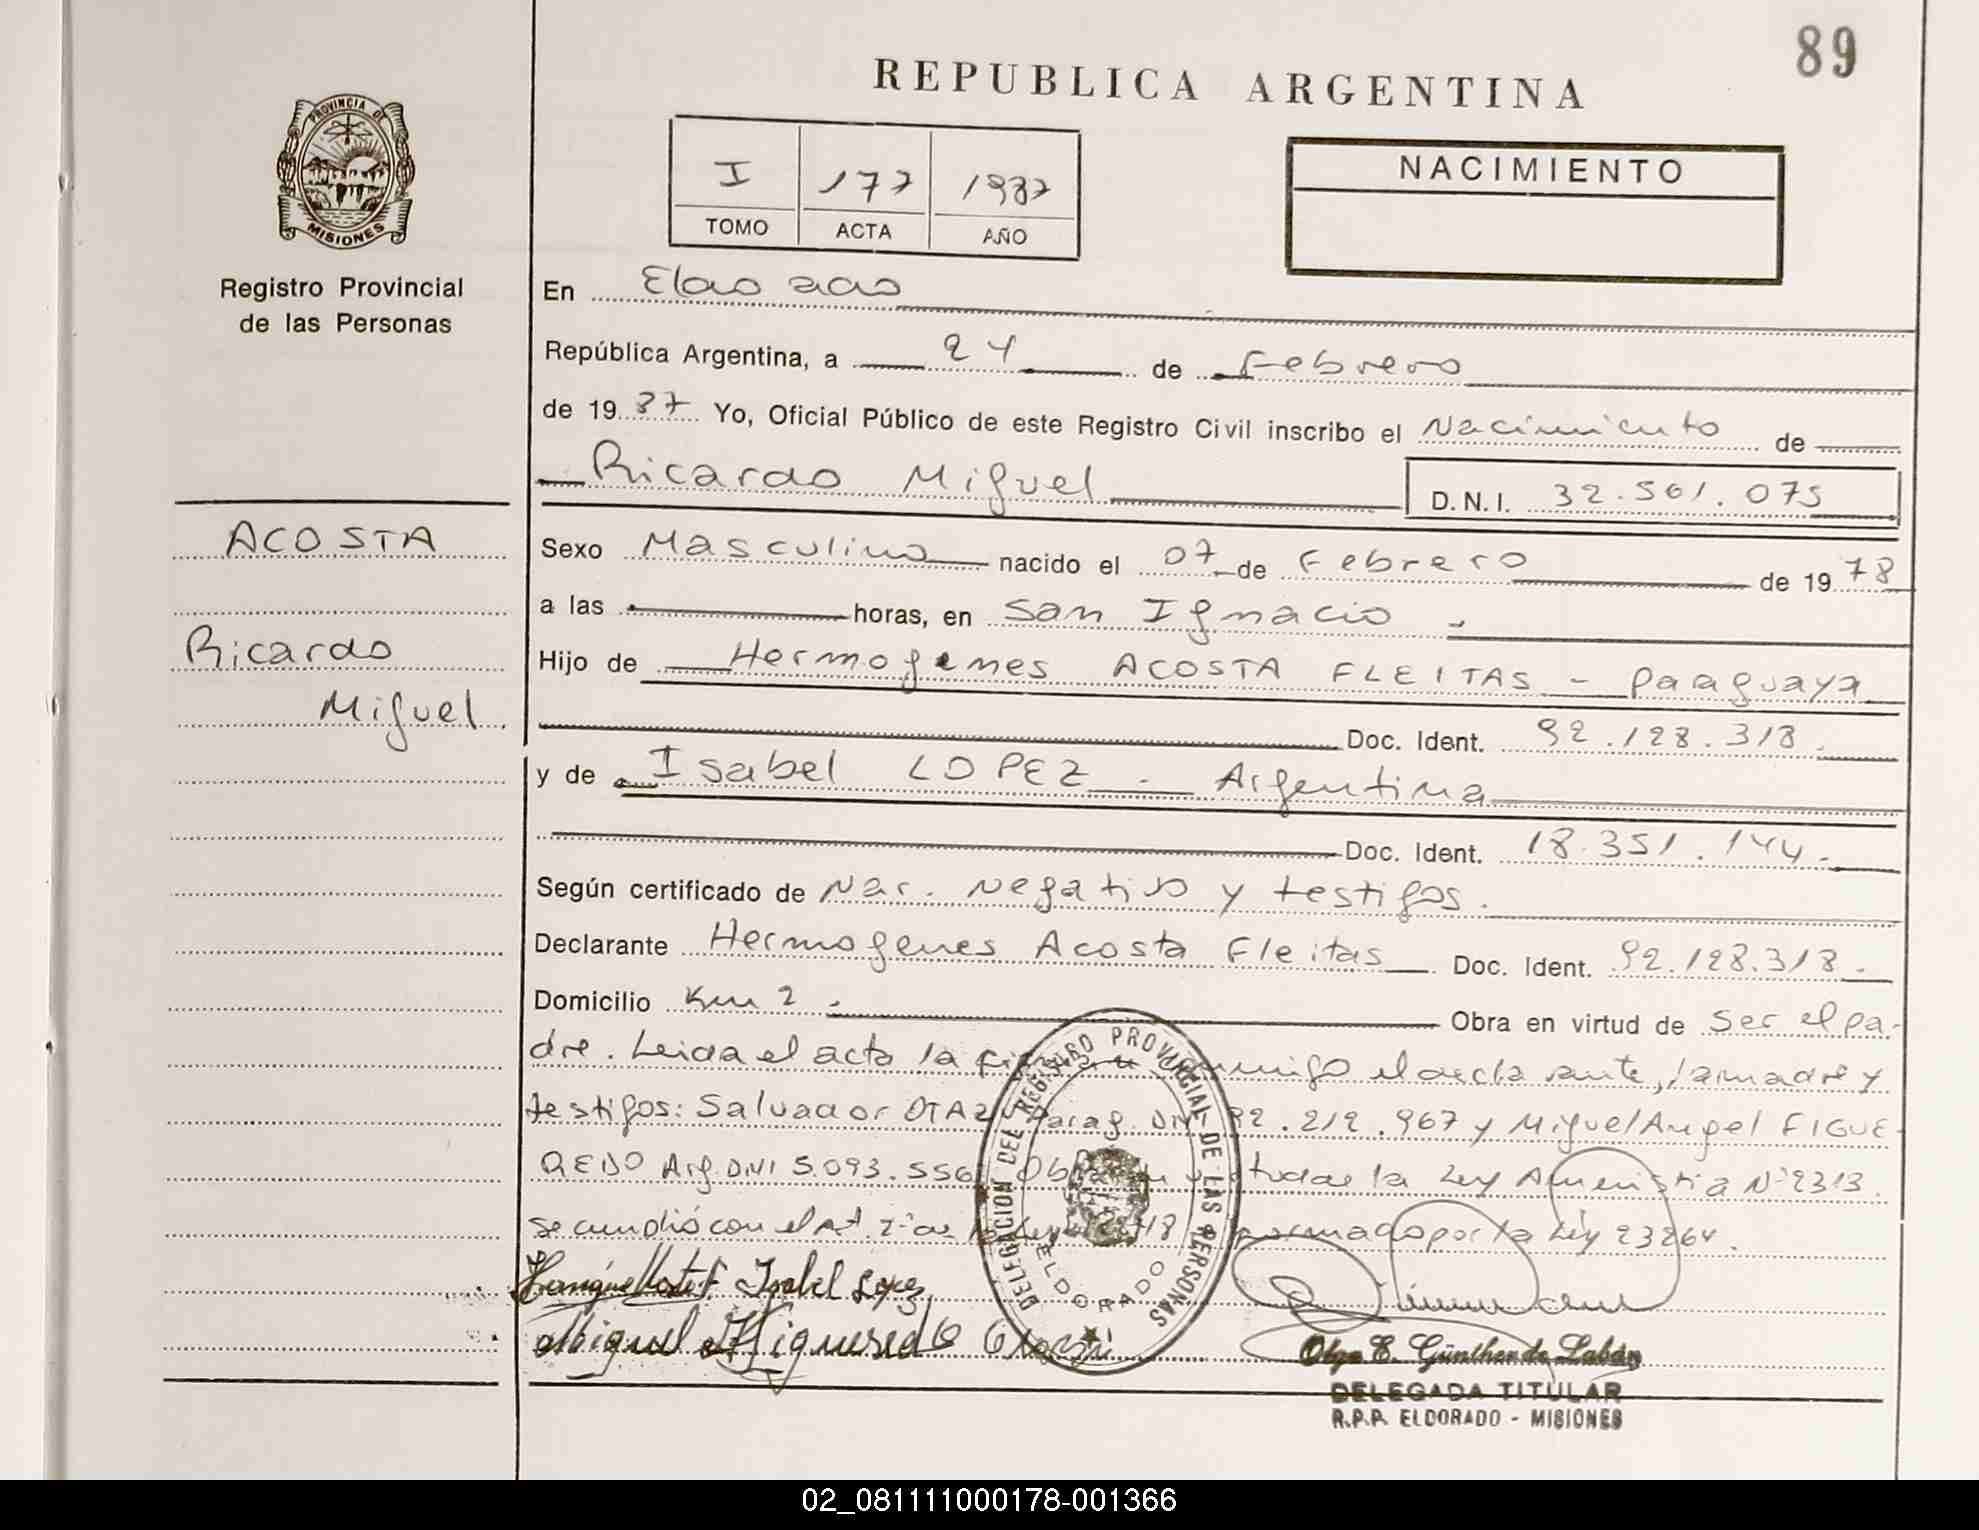 89
REPUBLICA ARGENTINA
PROVINCIA DE
MISIONES
Registro Provincial
de las Personas
I 177 1987
TOMO ACTA AÑO
NACIMIENTO
En Eldorado
República Argentina, a 24 de Febrero
de 19 87 Yo, Oficial Público de este Registro Civil inscribo el Nacimiento de
Ricardo Miguel D.N.I. 32.561.075
ACOSTA
Ricardo
Miguel
Sexo Masculino nacido el 07 de Febrero de 19 78
a las horas, en San Ignacio.
Hijo de Hermogenes ACOSTA FLEITAS - Paraguaya
Doc. Ident. 92.128.318.
y de Isabel LOPEZ - Argentina
Doc. Ident. 18.351.144.
Según certificado de Nac. Negativo y testigos.
Declarante Hermogenes Acosta Fleitas Doc. Ident. 92.128.318.
Domicilio Km 2. Obra en virtud de Ser el pa-
dre. Leida el acta la conmigo el declarante, la madre y
testigos: Salvador OTAZ Parag. DNI 92.212.967 y Miguel Angel FIGUE
REDO Arg. DNI 5.093.556 la Ley Amnistia Nº 2313.
se cumplió con el Art. 2º de la Ley por la Ley 23264.
Isabel Lopez
Miguel A Figueredo
DELEGACION DEL REGISTRO PROVINCIAL DE LAS PERSONAS
ELDORADO
Olga E. Günther de Labán
DELEGADA TITULAR
R.P.P. ELDORADO - MISIONES
02_081111000178-001366